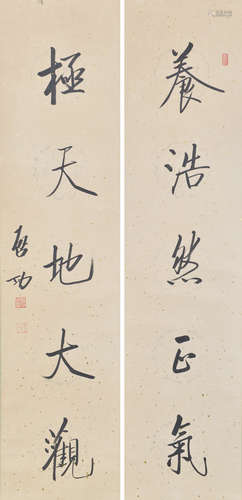 養浩然正氣
極天地大觀
啟功